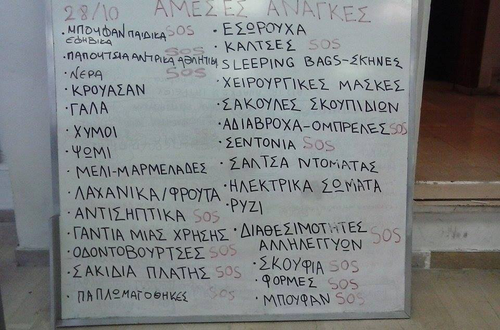 28/10 ΑΜΕΣΕΣ ΑΝΑΓΚΕΣ
· ΜΠΟΥΦΑΝ ΠΑΙΔΙΚΑ SOS
ΕΦΗΒΙΚΑ
· ΠΑΠΟΥΤΣΙΑ ΑΝΤΡΙΚΑ ΑΘΛΗΤΙΚΑ SOS
· ΝΕΡΑ SOS
· ΚΡΟΥΑΣΑΝ
· ΓΑΛΑ
· ΧΥΜΟΙ
· ΨΩΜΙ
· ΜΕΛΙ-ΜΑΡΜΕΛΑΔΕΣ
· ΛΑΧΑΝΙΚΑ/ΦΡΟΥΤΑ
· ΑΝΤΙΣΗΠΤΙΚΑ SOS
· ΓΑΝΤΙΑ ΜΙΑΣ ΧΡΗΣΗΣ
· ΟΔΟΝΤΟΒΟΥΡΤΣΕΣ SOS
· ΣΑΚΙΔΙΑ ΠΛΑΤΗΣ SOS
· ΠΑΠΛΩΜΑΤΟΘΗΚΕΣ SOS
· ΕΣΩΡΟΥΧΑ
· ΚΑΛΤΣΕΣ SOS
· SLEEPING BAGS-ΣΚΗΝΕΣ
· ΧΕΙΡΟΥΡΓΙΚΕΣ ΜΑΣΚΕΣ
· ΣΑΚΟΥΛΕΣ ΣΚΟΥΠΙΔΙΩΝ
· ΑΔΙΑΒΡΟΧΑ-ΟΜΠΡΕΛΕΣ SOS
· ΣΕΝΤΟΝΙΑ SOS
· ΣΑΛΤΣΑ ΝΤΟΜΑΤΑΣ
· ΗΛΕΚΤΡΙΚΑ ΣΩΜΑΤΑ
· ΡΥΖΙ
· ΔΙΑΘΕΣΙΜΟΤΗΤΕΣ
ΑΛΛΗΛΕΓΓΥΩΝ SOS
· ΣΚΟΥΦΙΑ SOS
· ΦΟΡΜΕΣ SOS
· ΜΠΟΥΦΑΝ SOS